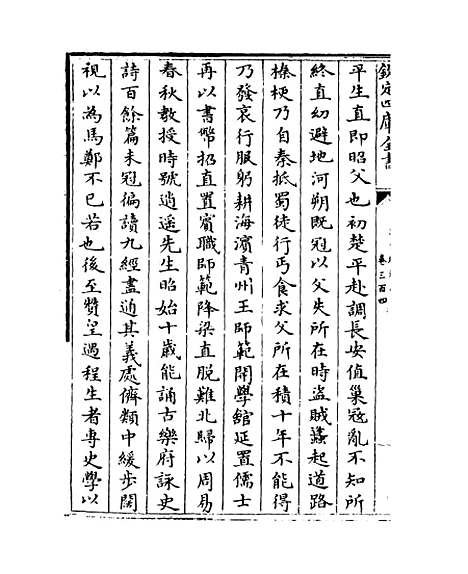 欽定四庫全書
卷三百四
平生直即昭父也初楚平赴調長安值巢冦亂不知所
終直幼避地河朔既冠以父失所在時盜賊蠭起道路
榛梗乃自秦抵蜀徒行丐食求父所在積十年不能得
乃發哀行服躬耕海濱青州王師範開學館延置儒士
再以書幣招直置賓職師範降梁直脱難北歸以周易
春秋教授時號逍遥先生昭始十歲能誦古樂府詠史
詩百餘篇未冠徧讀九經盡通其義處儕類中緩步闊
視以為馬鄭不已若也後至贊皇遇程生者専史學以